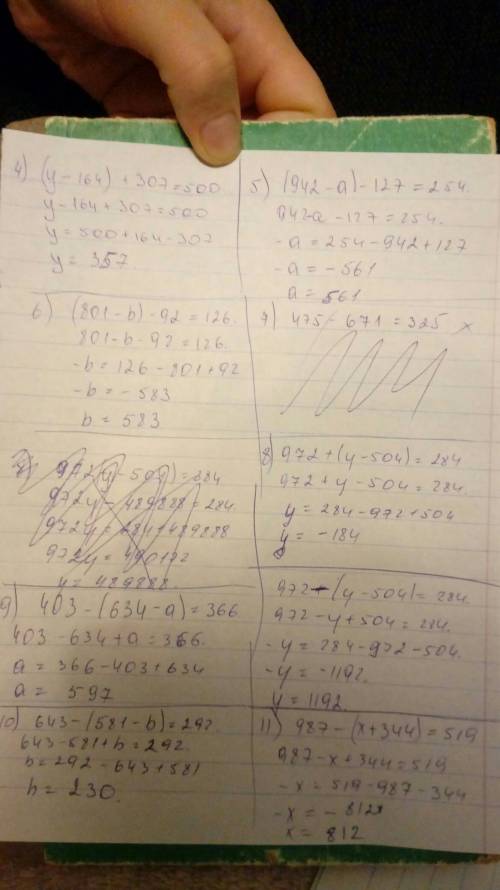 4) (y-164)+307=500
y-164+307=500
y=500+164-307
y=357.
5) (942-a)-127=254.
942-a-127=254.
-a=254-942+127
-a=-561
a=561
6) (801-b)-92=126.
801-b-92=126.
-b=126-801+92
-b=-583
b=583
7) 475-671=325 x
972(y-504)=284
972y-489888=284.
972y=284+489888
972y=490172
y=489888.
8) 972+(y-504)=284
972+y-504=284.
y=284-972+504
y=-184
972-(y-504)=284.
972-y+504=284.
-y=284-972-504.
-y=-1192.
y=1192.
9) 403-(634-a)=366
403-634+a=366.
a=366-403+634
a=597
10) 643-(581-b)=292.
643-581+b=292.
b=292-643+581
b=230.
11) 987-(x+344)=519
987-x+344=519
-x=519-987-344
-x=-812
x=812